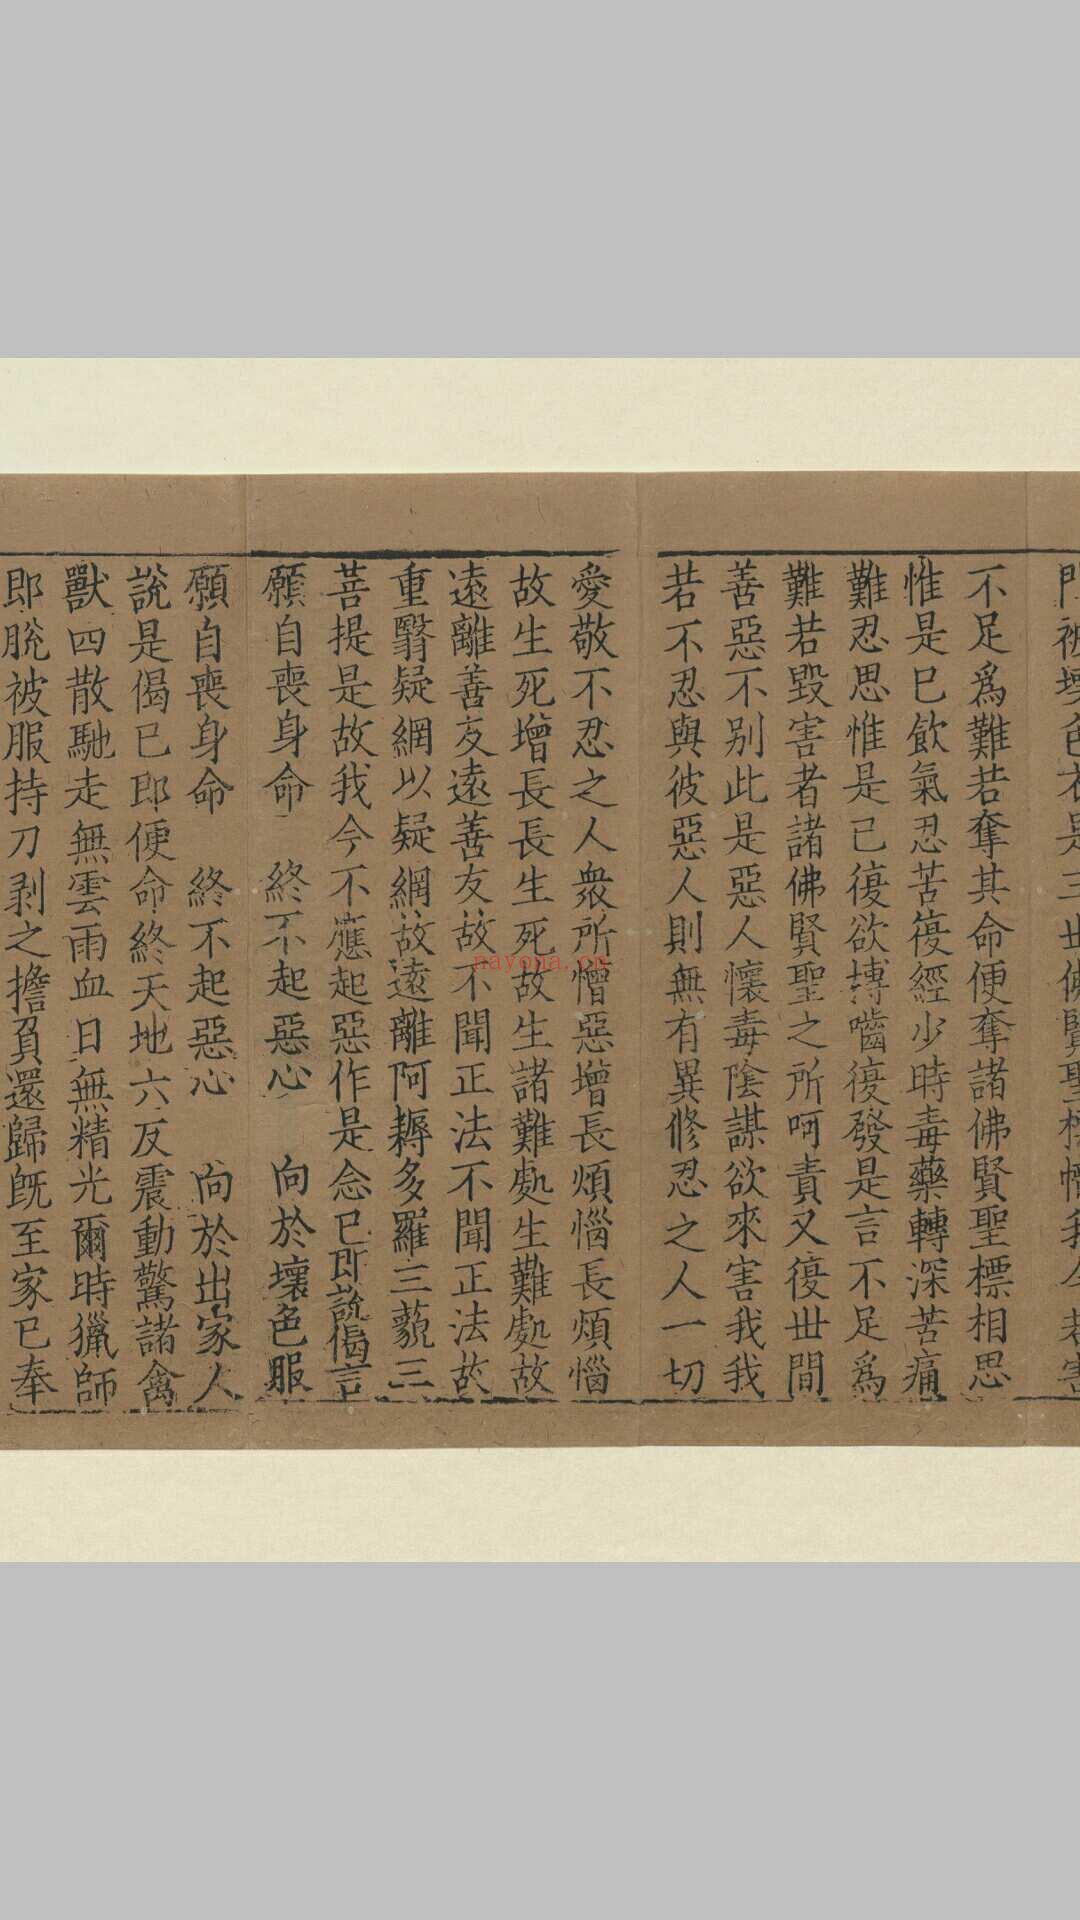 門被壞色衣是三世佛賢聖標幟我今若害
不足為難若奪其命便奪諸佛賢聖標相思
惟是已飲氣忍苦復經少時毒藥轉深苦痛
難忍思惟是已復欲摶嚙復發是言不足為
難若毀害者諸佛賢聖之所呵責又復世間
善惡不別此是惡人懷毒陰謀欲來害我我
若不忍與彼惡人則無有異修忍之人一切
愛敬不忍之人衆所憎惡增長煩惱長煩惱
故生死增長長生死故生諸難處生難處故
遠離善友遠善友故不聞正法不聞正法故
重翳疑網以疑網故遠離阿耨多羅三藐三
菩提是故我今不應起惡作是念已即說偈言
願自喪身命 終不起惡心 向於壞色服
願自喪身命 終不起惡心 向於出家人
說是偈已即便命終天地六反震動驚諸禽
獸四散馳走無雲雨血日無精光爾時獵師
即脫被服持刀剥之擔負還歸旣至家已奉
nayona.cn